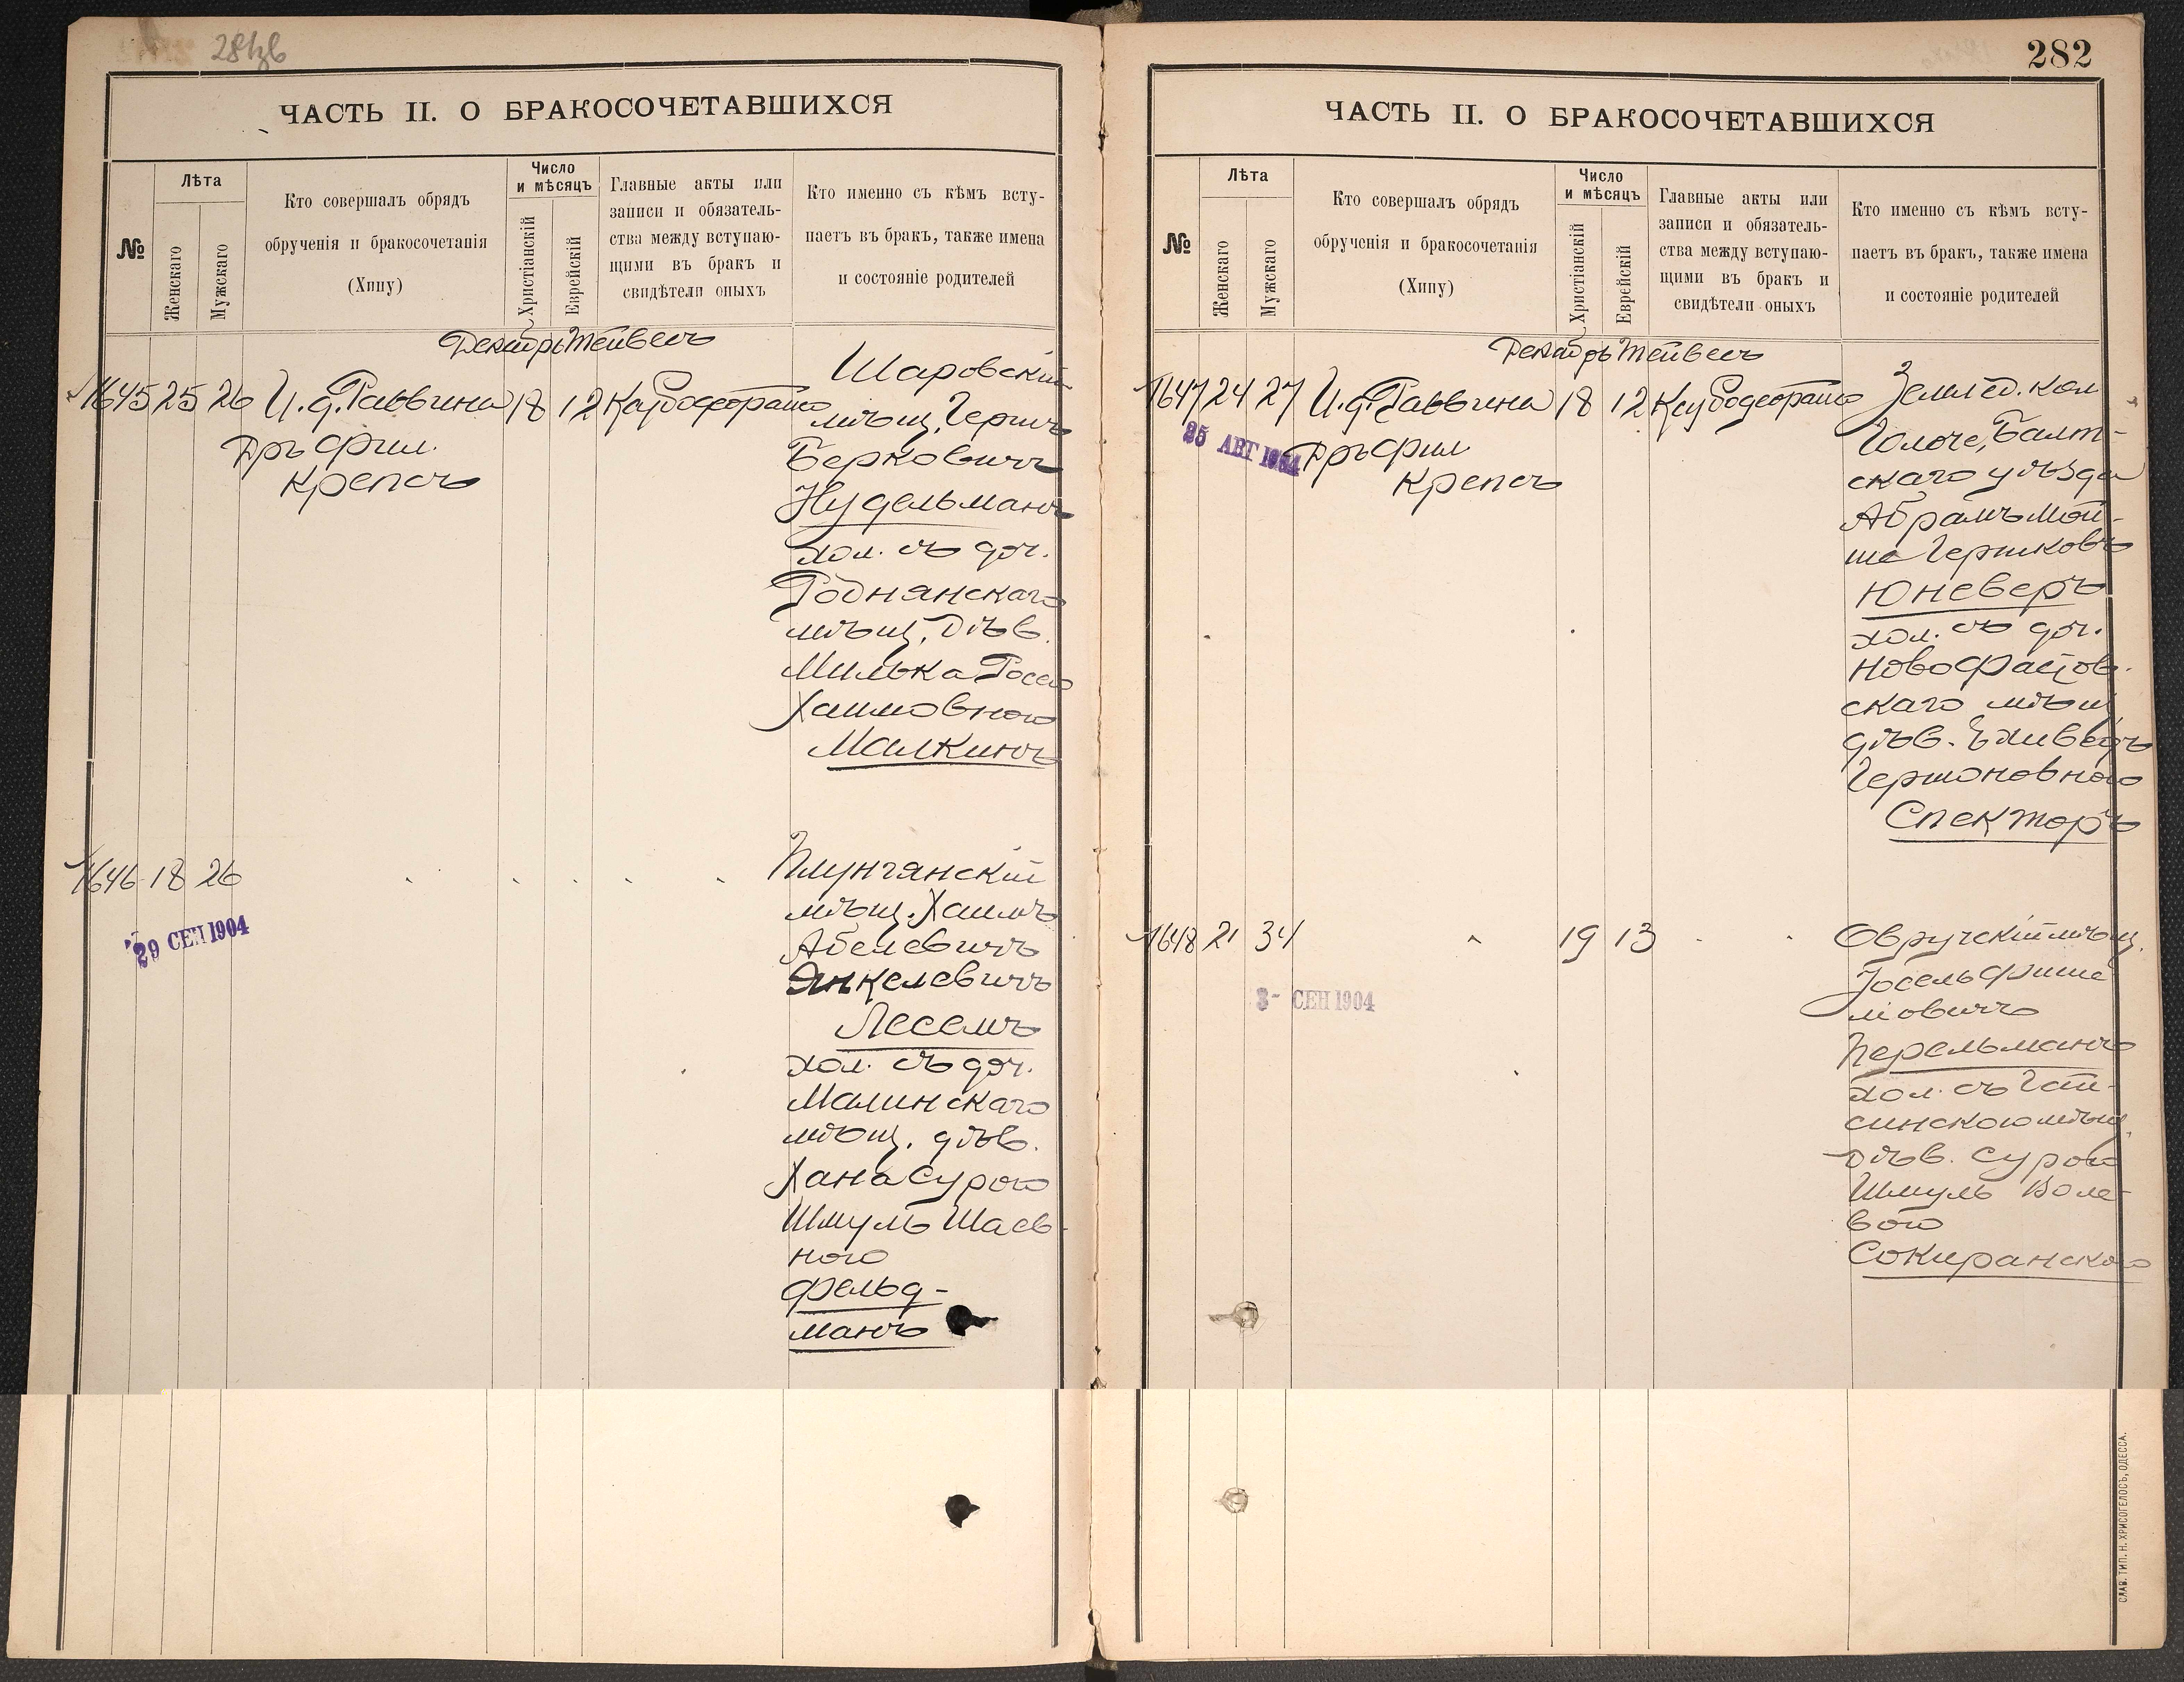 281об
ЧАСТЬ II. О БРАКОСОЧЕТАВШИХСЯ
№
Лѣта
Женскаго
Мужскаго
Кто совершалъ обрядъ
обрученія и бракосочетанія
(Хипу)
Число
и мѣсяцъ
Христіанскій
Еврейскій
Главные акты или
записи и обязатель-
ства между вступаю-
щими въ бракъ и
свидѣтели оныхъ
Кто именно съ кѣмъ всту-
паетъ въ бракъ, также имена
и состояніе родителей
Декабрь Тейвесъ
1645 25 26 И. д. Раввина 18 12
Дръ Фил.
Крепсъ
Шаровскій
мѣщ. Гершъ
Берковичъ
Нудельманъ
хол. съ доч.
мѣщ. Дѣв.
Милька
Хаимовною
Малкинъ
1646 18 26
29 СЕН 1904
Плунгянскій
мѣщ. Хаимъ
Абелевичъ
Янкелевичъ
Лесемъ
хол. съ доч.
Малинскаго
мѣщ. дѣв.
Хана Сурою
Шмуль Шаев-
ною
Фельд-
манъ
282
ЧАСТЬ II. О БРАКОСОЧЕТАВШИХСЯ
№
Лѣта
Женскаго
Мужскаго
Кто совершалъ обрядъ
обрученія и бракосочетанія
(Хипу)
Число
и мѣсяцъ
Христіанскій
Еврейскій
Главные акты или
записи и обязатель-
ства между вступаю-
щими въ бракъ и
свидѣтели оныхъ
Кто именно съ кѣмъ всту-
паетъ въ бракъ, также имена
и состояніе родителей
Декабрь Тейвесъ
1647 24 27 И. д. Раввина 18 12
Дръ Фил
Крепсъ
25 АВГ 1904
Землед. кол
Балт-
скаго уѣзда
Абрамъ Мой-
ше Гершковъ
Юневеръ
хол. съ доч.
скаго мѣщ
дѣв.
Гершоновною
Спекторъ
1648 21 34 19 13
3- СЕН 1904
Овручскій мѣщ.
Іосель Фише
левичъ
Перельманъ
хол. съ Гай-
синскою мѣщ.
Дѣв. Сурою
Шмуль Воле-
вою
Сокиранскою
СЛАВ. ТИП. Н. ХРИСОГЕЛОСЪ, ОДЕССА.